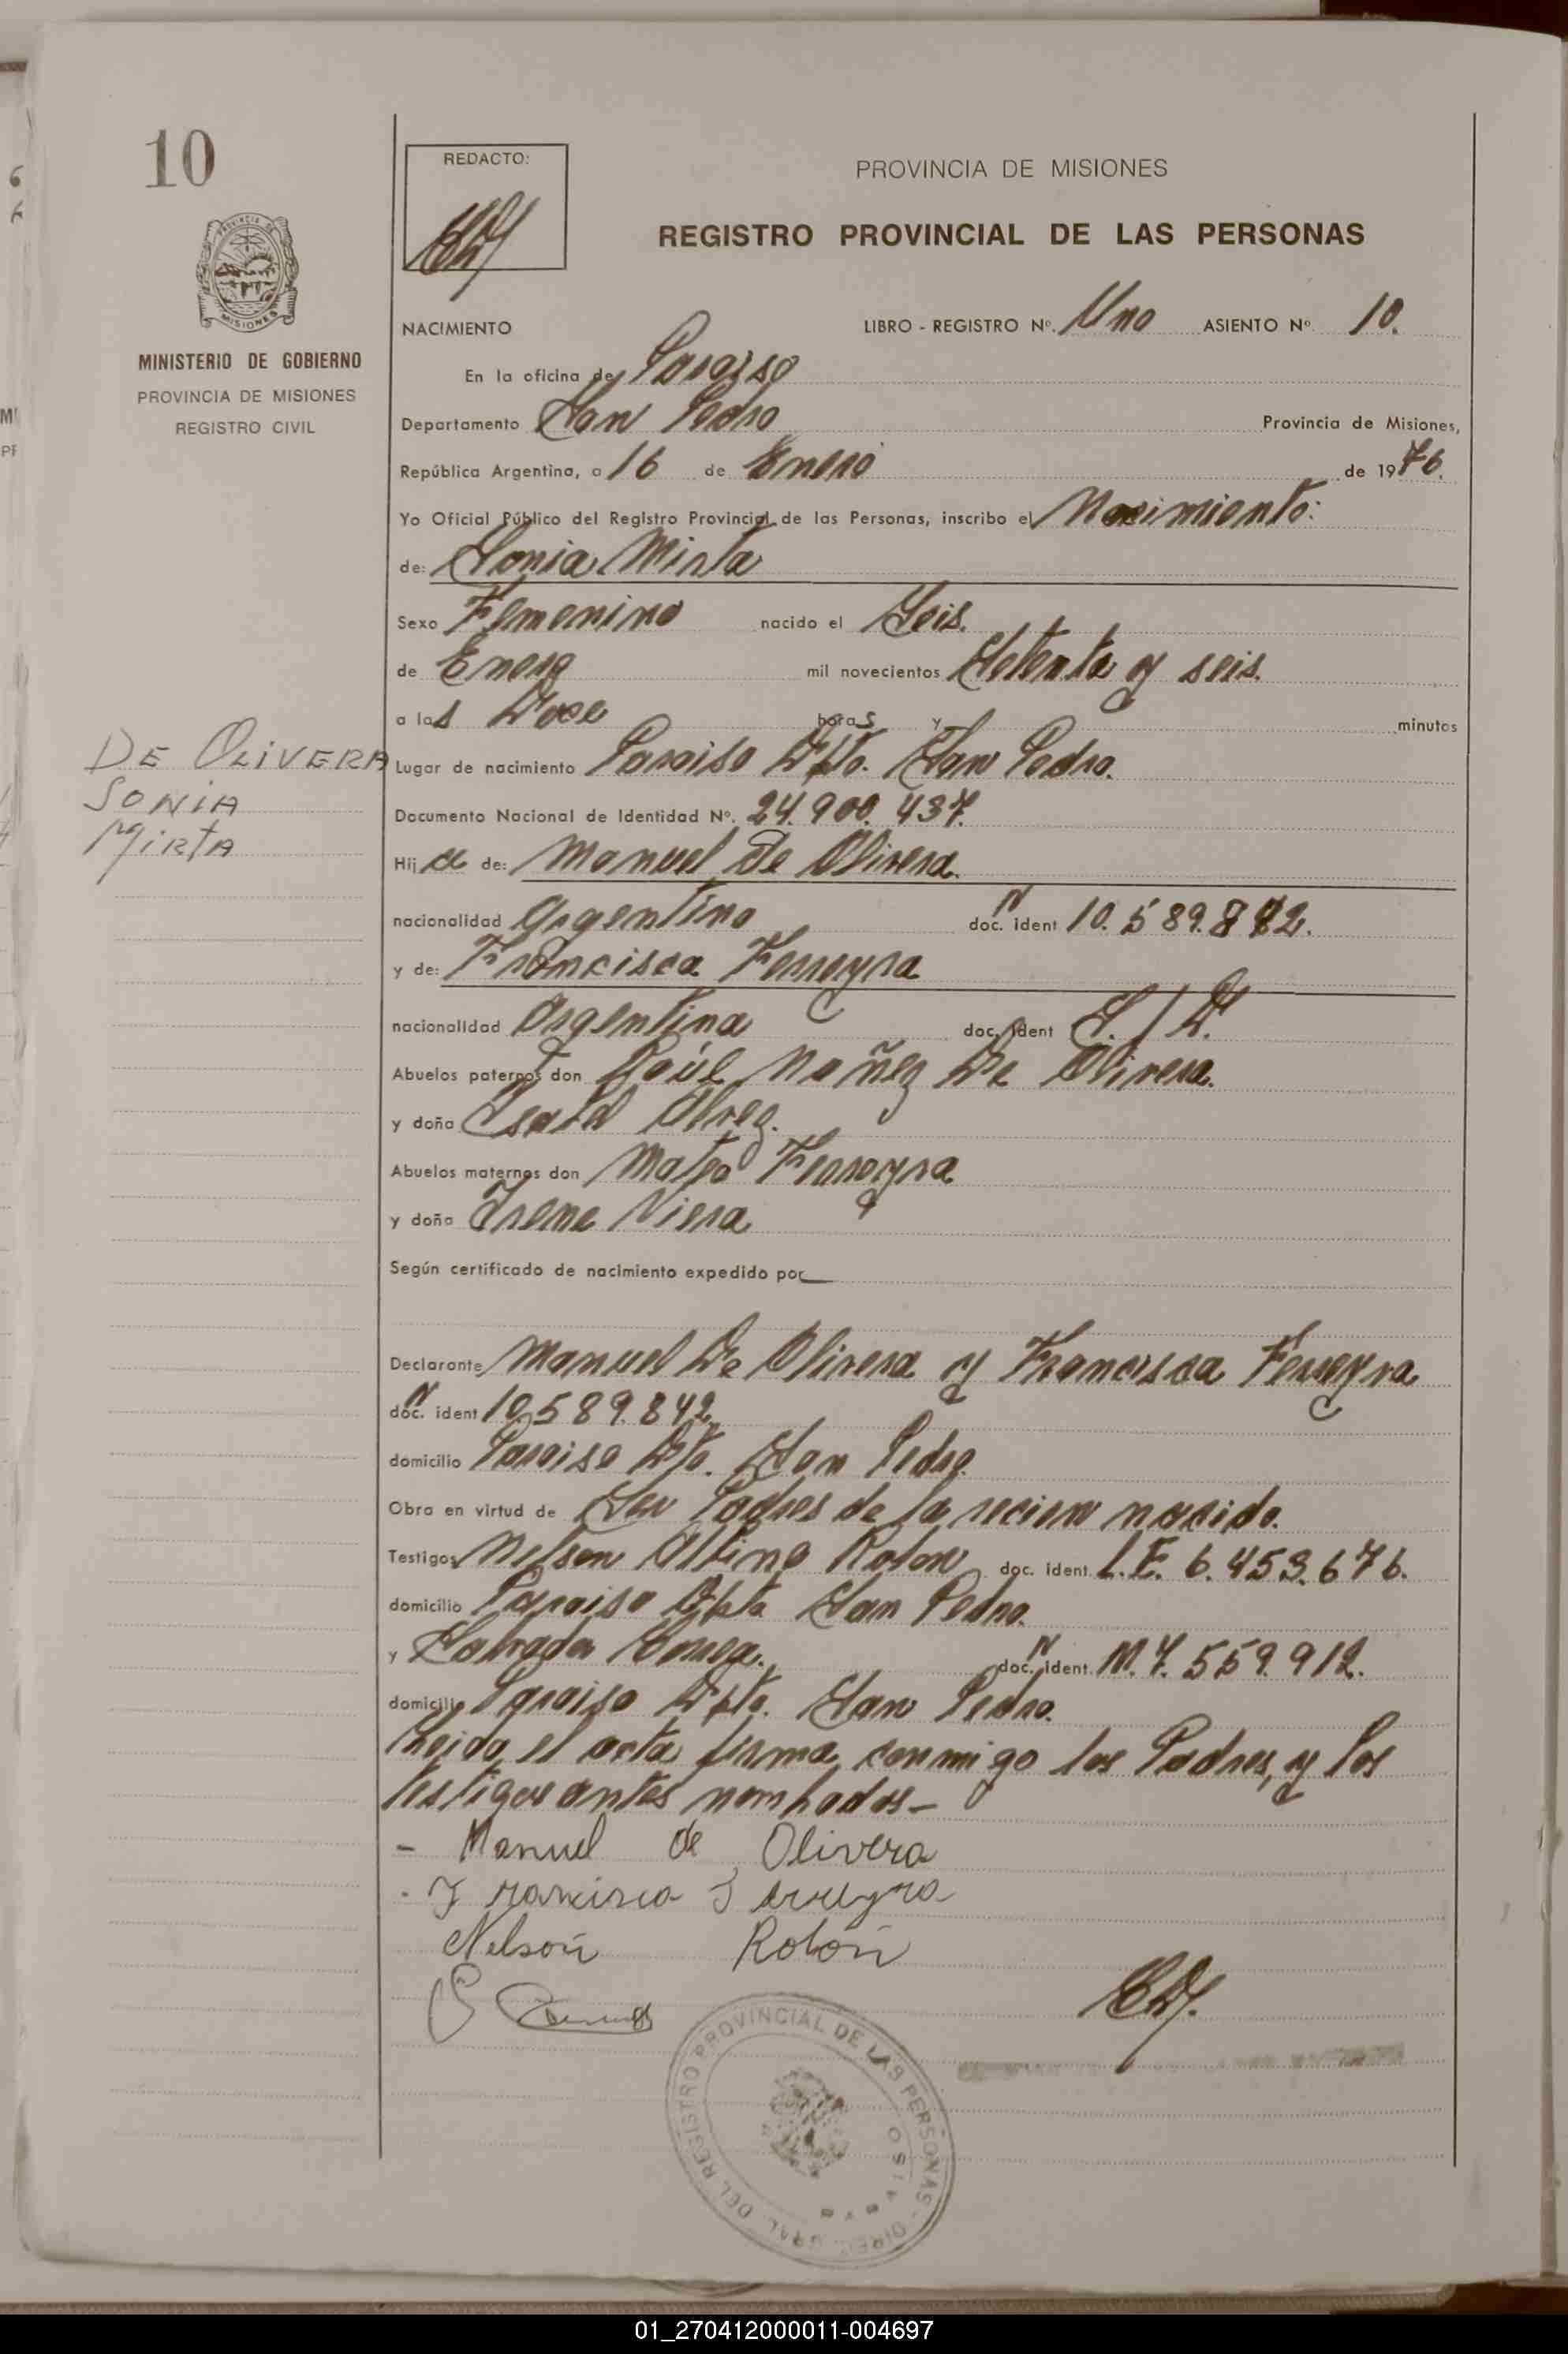 10
REDACTO:
PROVINCIA DE MISIONES
REGISTRO PROVINCIAL DE LAS PERSONAS
MISIONES
MINISTERIO DE GOBIERNO
PROVINCIA DE MISIONES
REGISTRO CIVIL
NACIMIENTO LIBRO - REGISTRO Nº. Uno ASIENTO Nº 10.
En la oficina de Paraiso
Departamento San Pedro Provincia de Misiones,
República Argentina, a 16 de Enero de 1976.
Yo Oficial Público del Registro Provincial de las Personas, inscribo el Nacimiento:
de: Sonia Mirta
Sexo Femenino nacido el Seis.
de Enero mil novecientos Setenta y seis.
a las Doce horas y minutos
DE OLIVERA
SONIA
MIRTA
Lugar de nacimiento Paraiso Dpto. San Pedro.
Documento Nacional de Identidad Nº. 24.900.437.
Hija de: Manuel De Olivera.
nacionalidad Argentino doc. ident 10.589.842.
y de: Francisca Ferreyra
nacionalidad Argentina doc. ident S./D.
Abuelos paternos don Raúl Nuñez De Olivera.
y doña Isabel Alvez.
Abuelos maternos don Mateo Ferreyra
y doña Irene Viera
Según certificado de nacimiento expedido por
Declarante Manuel De Olivera y Francisca Ferreyra
doc. ident 10.589.842
domicilio Paraiso Dpto. San Pedro.
Obra en virtud de Ser Padres de la recien nacido.
Testigos Nelson Albino Rolon doc. ident. L.E. 6.453.676.
domicilio Paraiso Dpto San Pedro.
y doc. ident. M.7.559.912.
domicilio Paraiso Dpto. San Pedro.
Leida el acta firma conmigo los Padres, y los
testigos antes nombados-
- Manuel de Olivera
- Francisca Ferreyra
Nelson Rolón
REGISTRO PROVINCIAL DE LAS PERSONAS - DIREC. GRAL. DEL
01_270412000011-004697